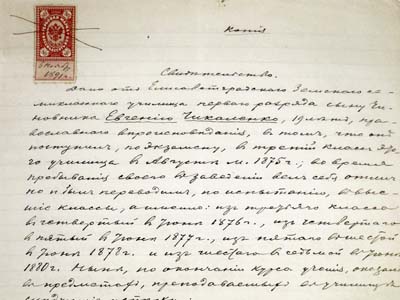 копія
6 Ноябр.
1891 г.
Свидѣтельство.
Дано отъ Елисаветградскаго Земскаго ре-
альнаго училища перваго разряда сыну чи-
новника Евгенію Чикаленко, 19 лѣтъ, пра-
вославнаго вѣроисповѣданія, въ томъ, что онъ
поступилъ, по экзамену, въ третій классъ
го училища въ Августѣ м. 1875 г.; во время
пребыванія своего въ заведеніи велъ себя отлич
но и былъ переводимъ, по испытанію, въ выс-
шіе классы, а именно: изъ третьяго класса
въ четвертый въ Іюнѣ 1876 г., изъ четвертаго
въ пятый въ Іюнѣ 1877 г., изъ пятаго въ шестой
въ Іюнѣ 1878 г. и изъ шестаго въ седьмой въ Іюнѣ
1880 г. Нынѣ, по окончаніи курса ученія, оказалъ
въ предметахъ, преподаваемыхъ въ училищѣ